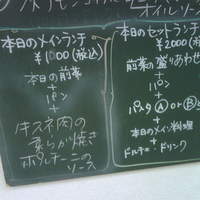 オイルソース
本日のメインランチ
¥1000(税込)
本日の前菜
+
パン
+
キスネ肉の
柔らか焼き
ポルチーニの
ソース
本日のセットランチ
¥2000(税込)
前菜の盛りあわせ
+
パン
+
パスタ Ⓐ or Ⓑ
+
本日のメイン料理
+
ドルチェ・ドリンク